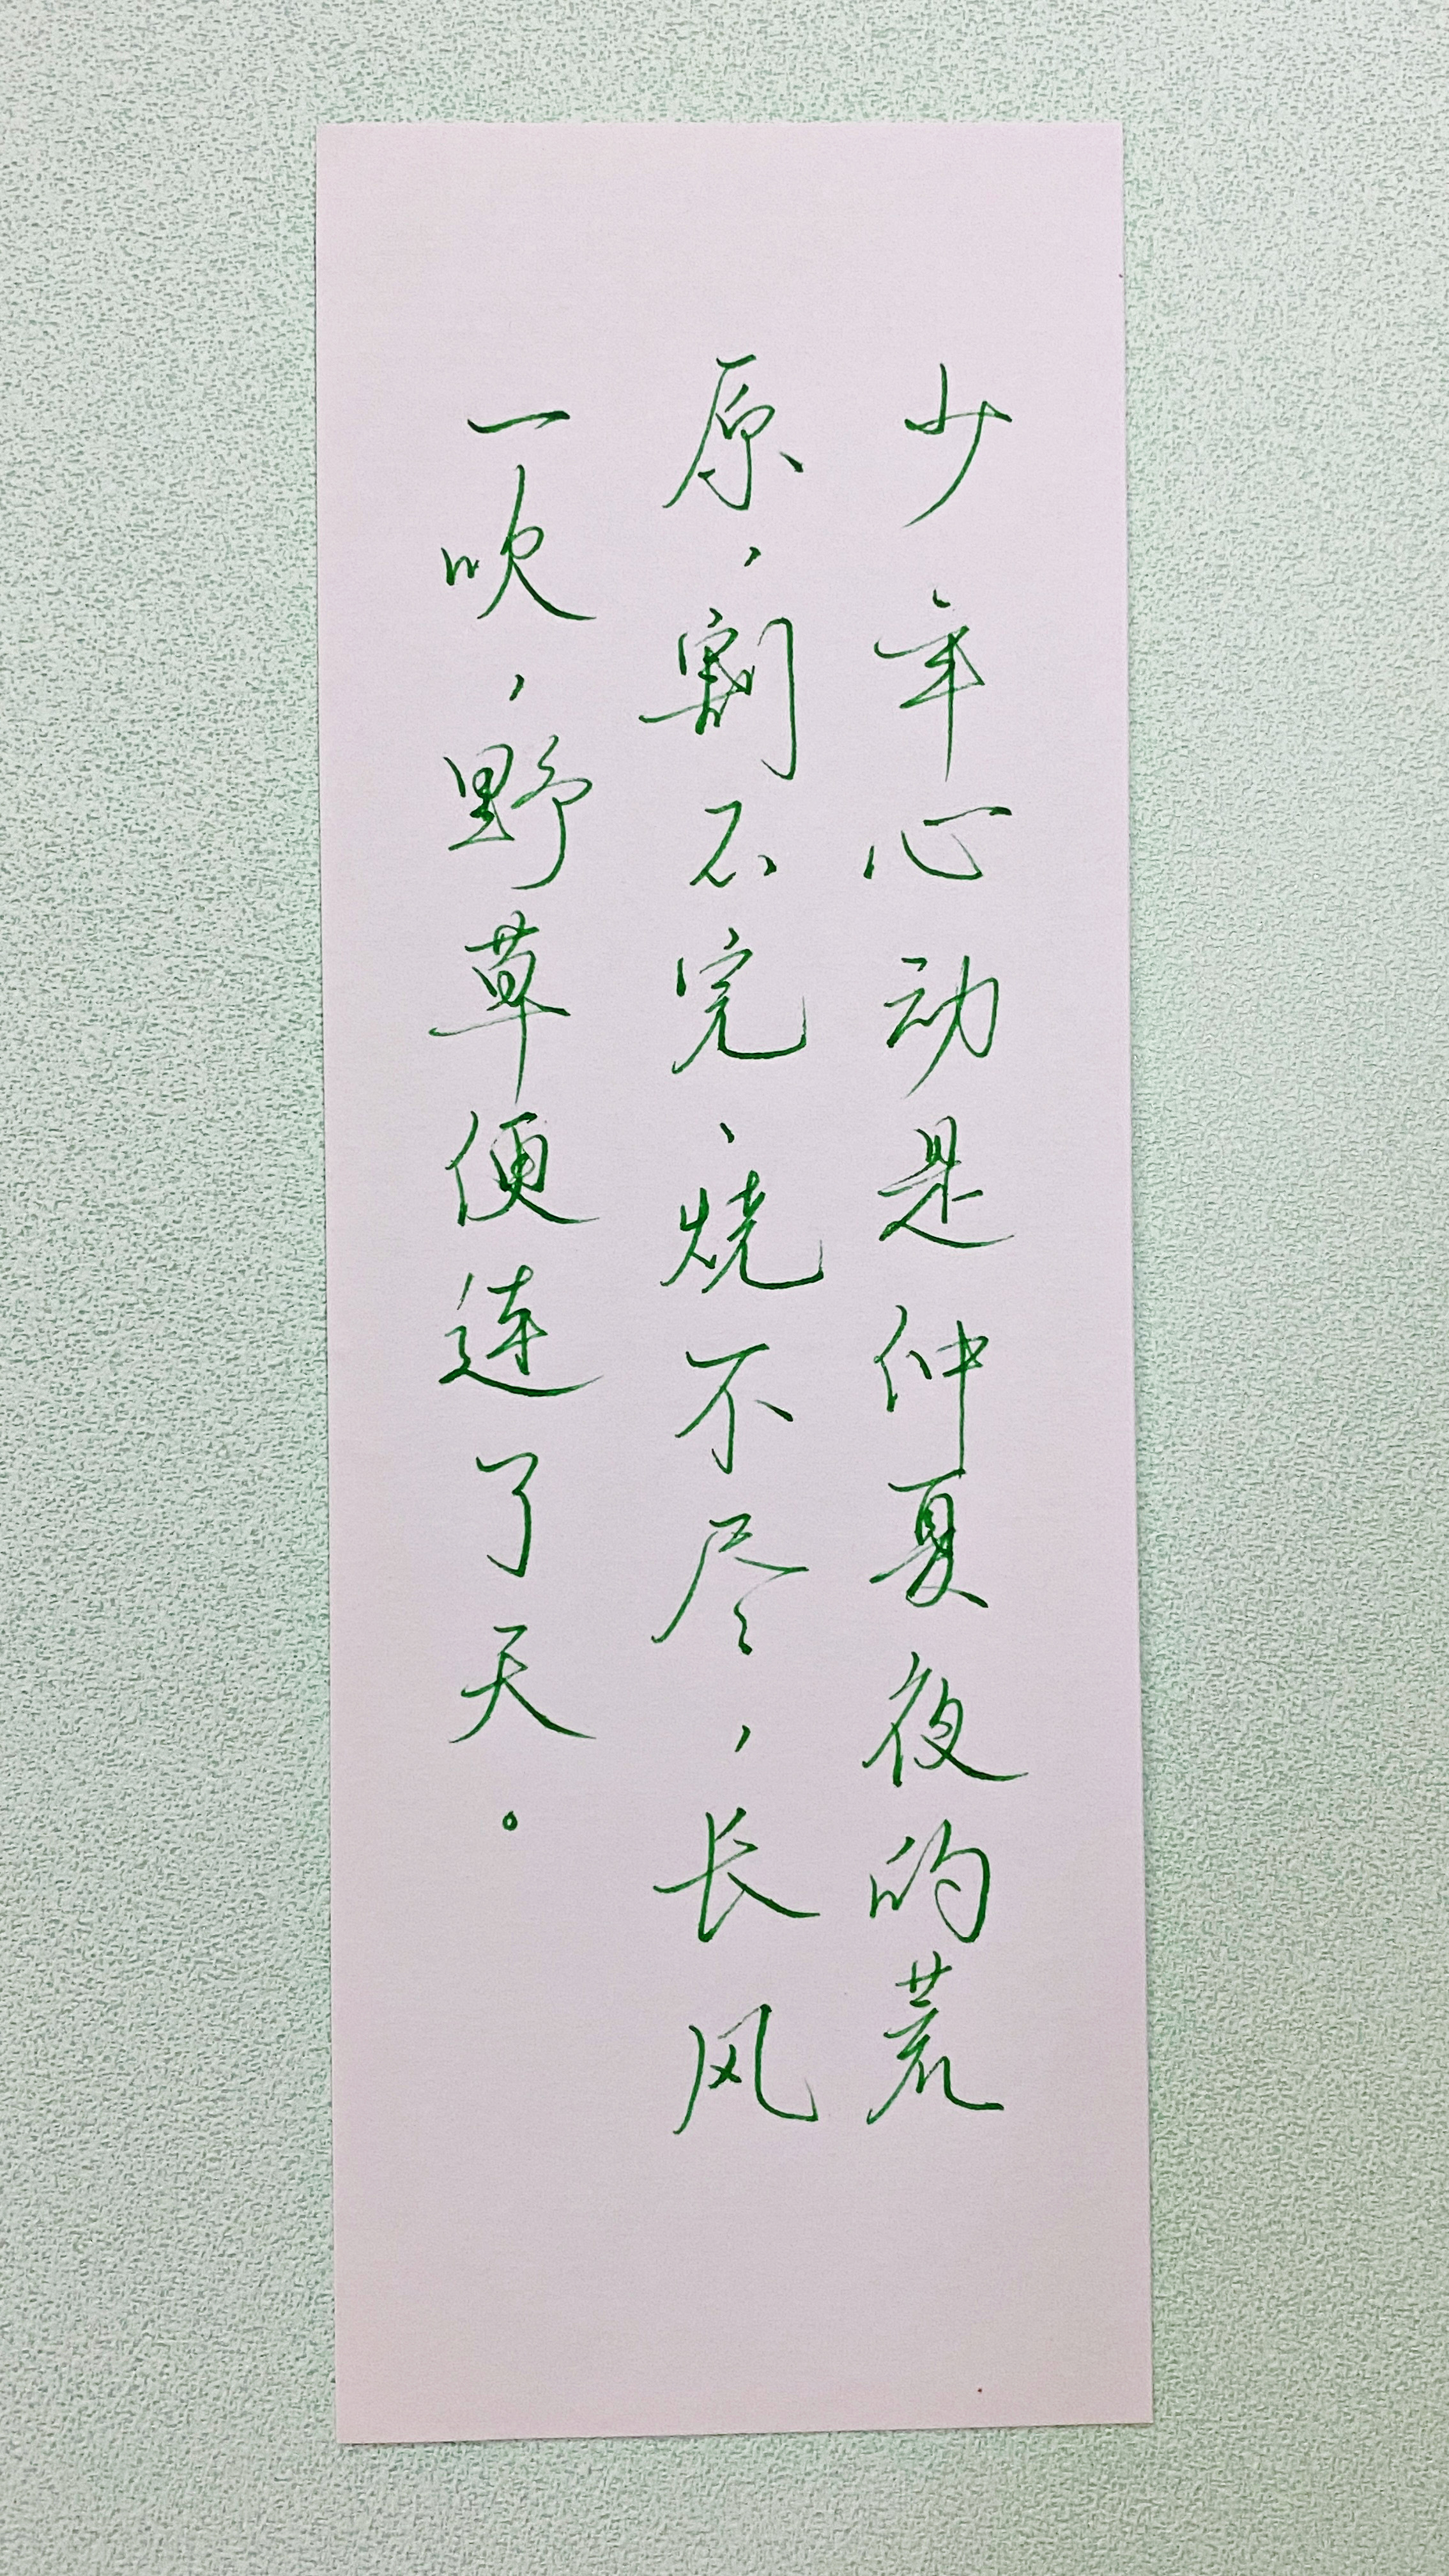 少年心动是仲夏夜的荒
原，割不完、烧不尽，长风
一吹，野草便连了天。